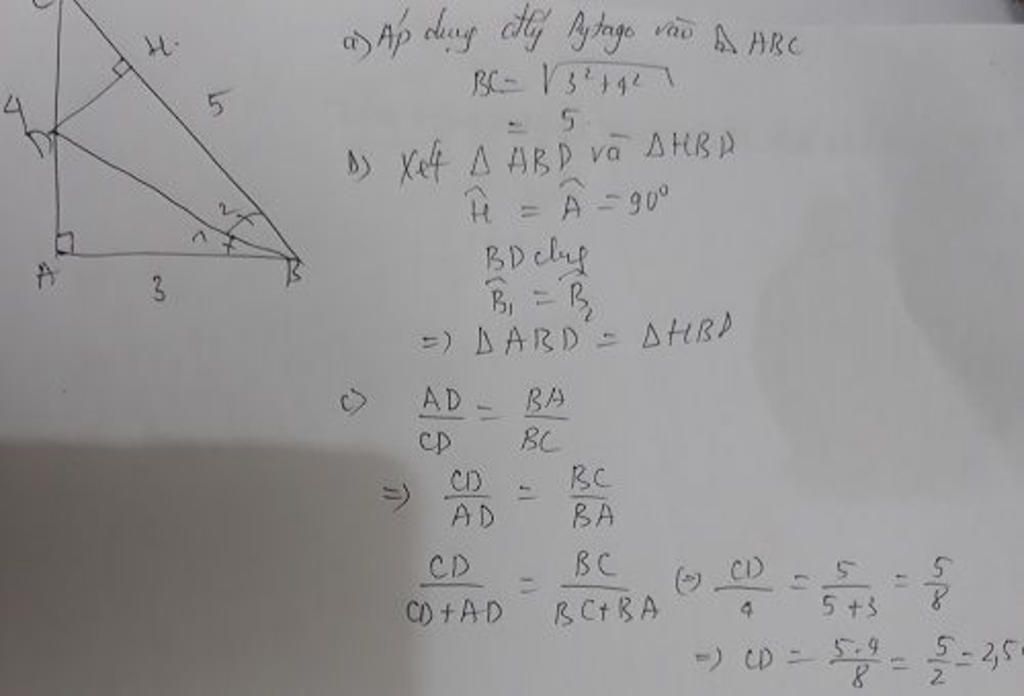 C
H
4
5
2
1
A
3
B
a) Áp dụng đlý Pytago vào Δ ABC
BC = √3² + 4²
= 5
b) Xét Δ ABD và ΔHBD
Ĥ = Â = 90°
BD chung
B̂₁ = B̂₂
=) Δ ABD = ΔHBD
c) AD/CD = BA/BC
=) CD/AD = BC/BA
CD/CD+AD = BC/BC+BA (=) CD/4 = 5/5+3 = 5/8
=) CD = 5.4/8 = 5/2 = 2,5